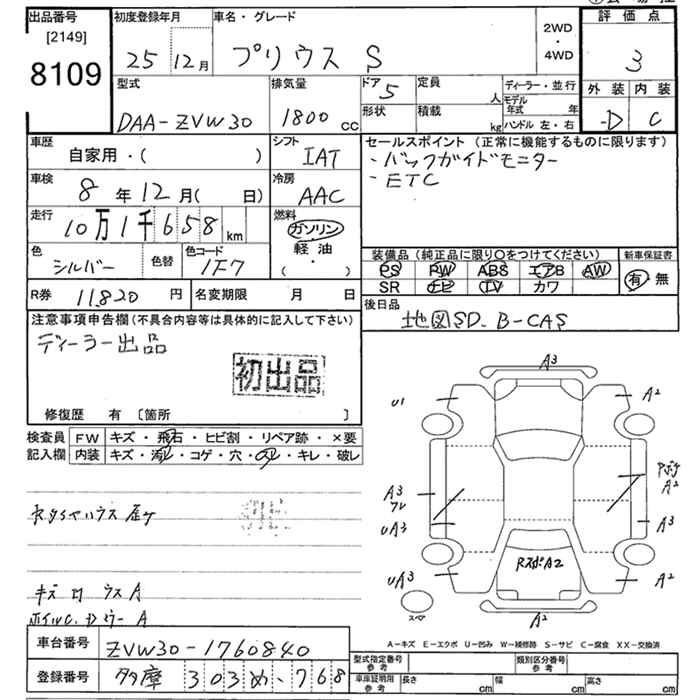 出品番号 初度登録年月 車名・グレード 2WD・4WD 評価点
[2149]
8109 25 12月 プリウス S 3
型式 排気量 ドア 5 定員 人 ディーラー・並行 外装 内装
モデル年式 年
DAA-ZVW30 1800 cc 形状 積載 kg ハンドル 左・右 D C
車歴 シフト セールスポイント (正常に機能するものに限ります)
自家用・( ) IAT ・バックガイドモニター
車検 8年12月( 日) 冷房 AAC ・ETC
走行 10万1千658km 燃料 ガソリン
軽油
・( )
色 シルバー 色替 色コード 1F7
装備品 (純正品に限り○をつけてください) 新車保証書
PS PW ABS エアB AW 有 無
SR ナビ TV カワ
R券 11.820円 名変期限 月 日 後日品
地図SD. B-CAS
注意事項申告欄(不具合内容等は具体的に記入して下さい)
ディーラー出品
初出品
修復歴 有 〔箇所 〕
検査員 FW キズ・飛石・ヒビ割・リペア跡・×要
記入欄 内装 キズ・汚レ・コゲ・穴・スレ・キレ・破レ
A3
U1 A2
A3 A2
UA3 A3
UA3 A2
A2
スペア
A-キズ E-エクボ U-凹み W-補修跡 S-サビ C-腐食 XX-交換済
車台番号 ZVW30-1760840
登録番号 多摩 303 め・768
型式指定番号 参考 類別区分番号 参考
車庫証明用 参考 長さ cm 幅 cm 高さ cm